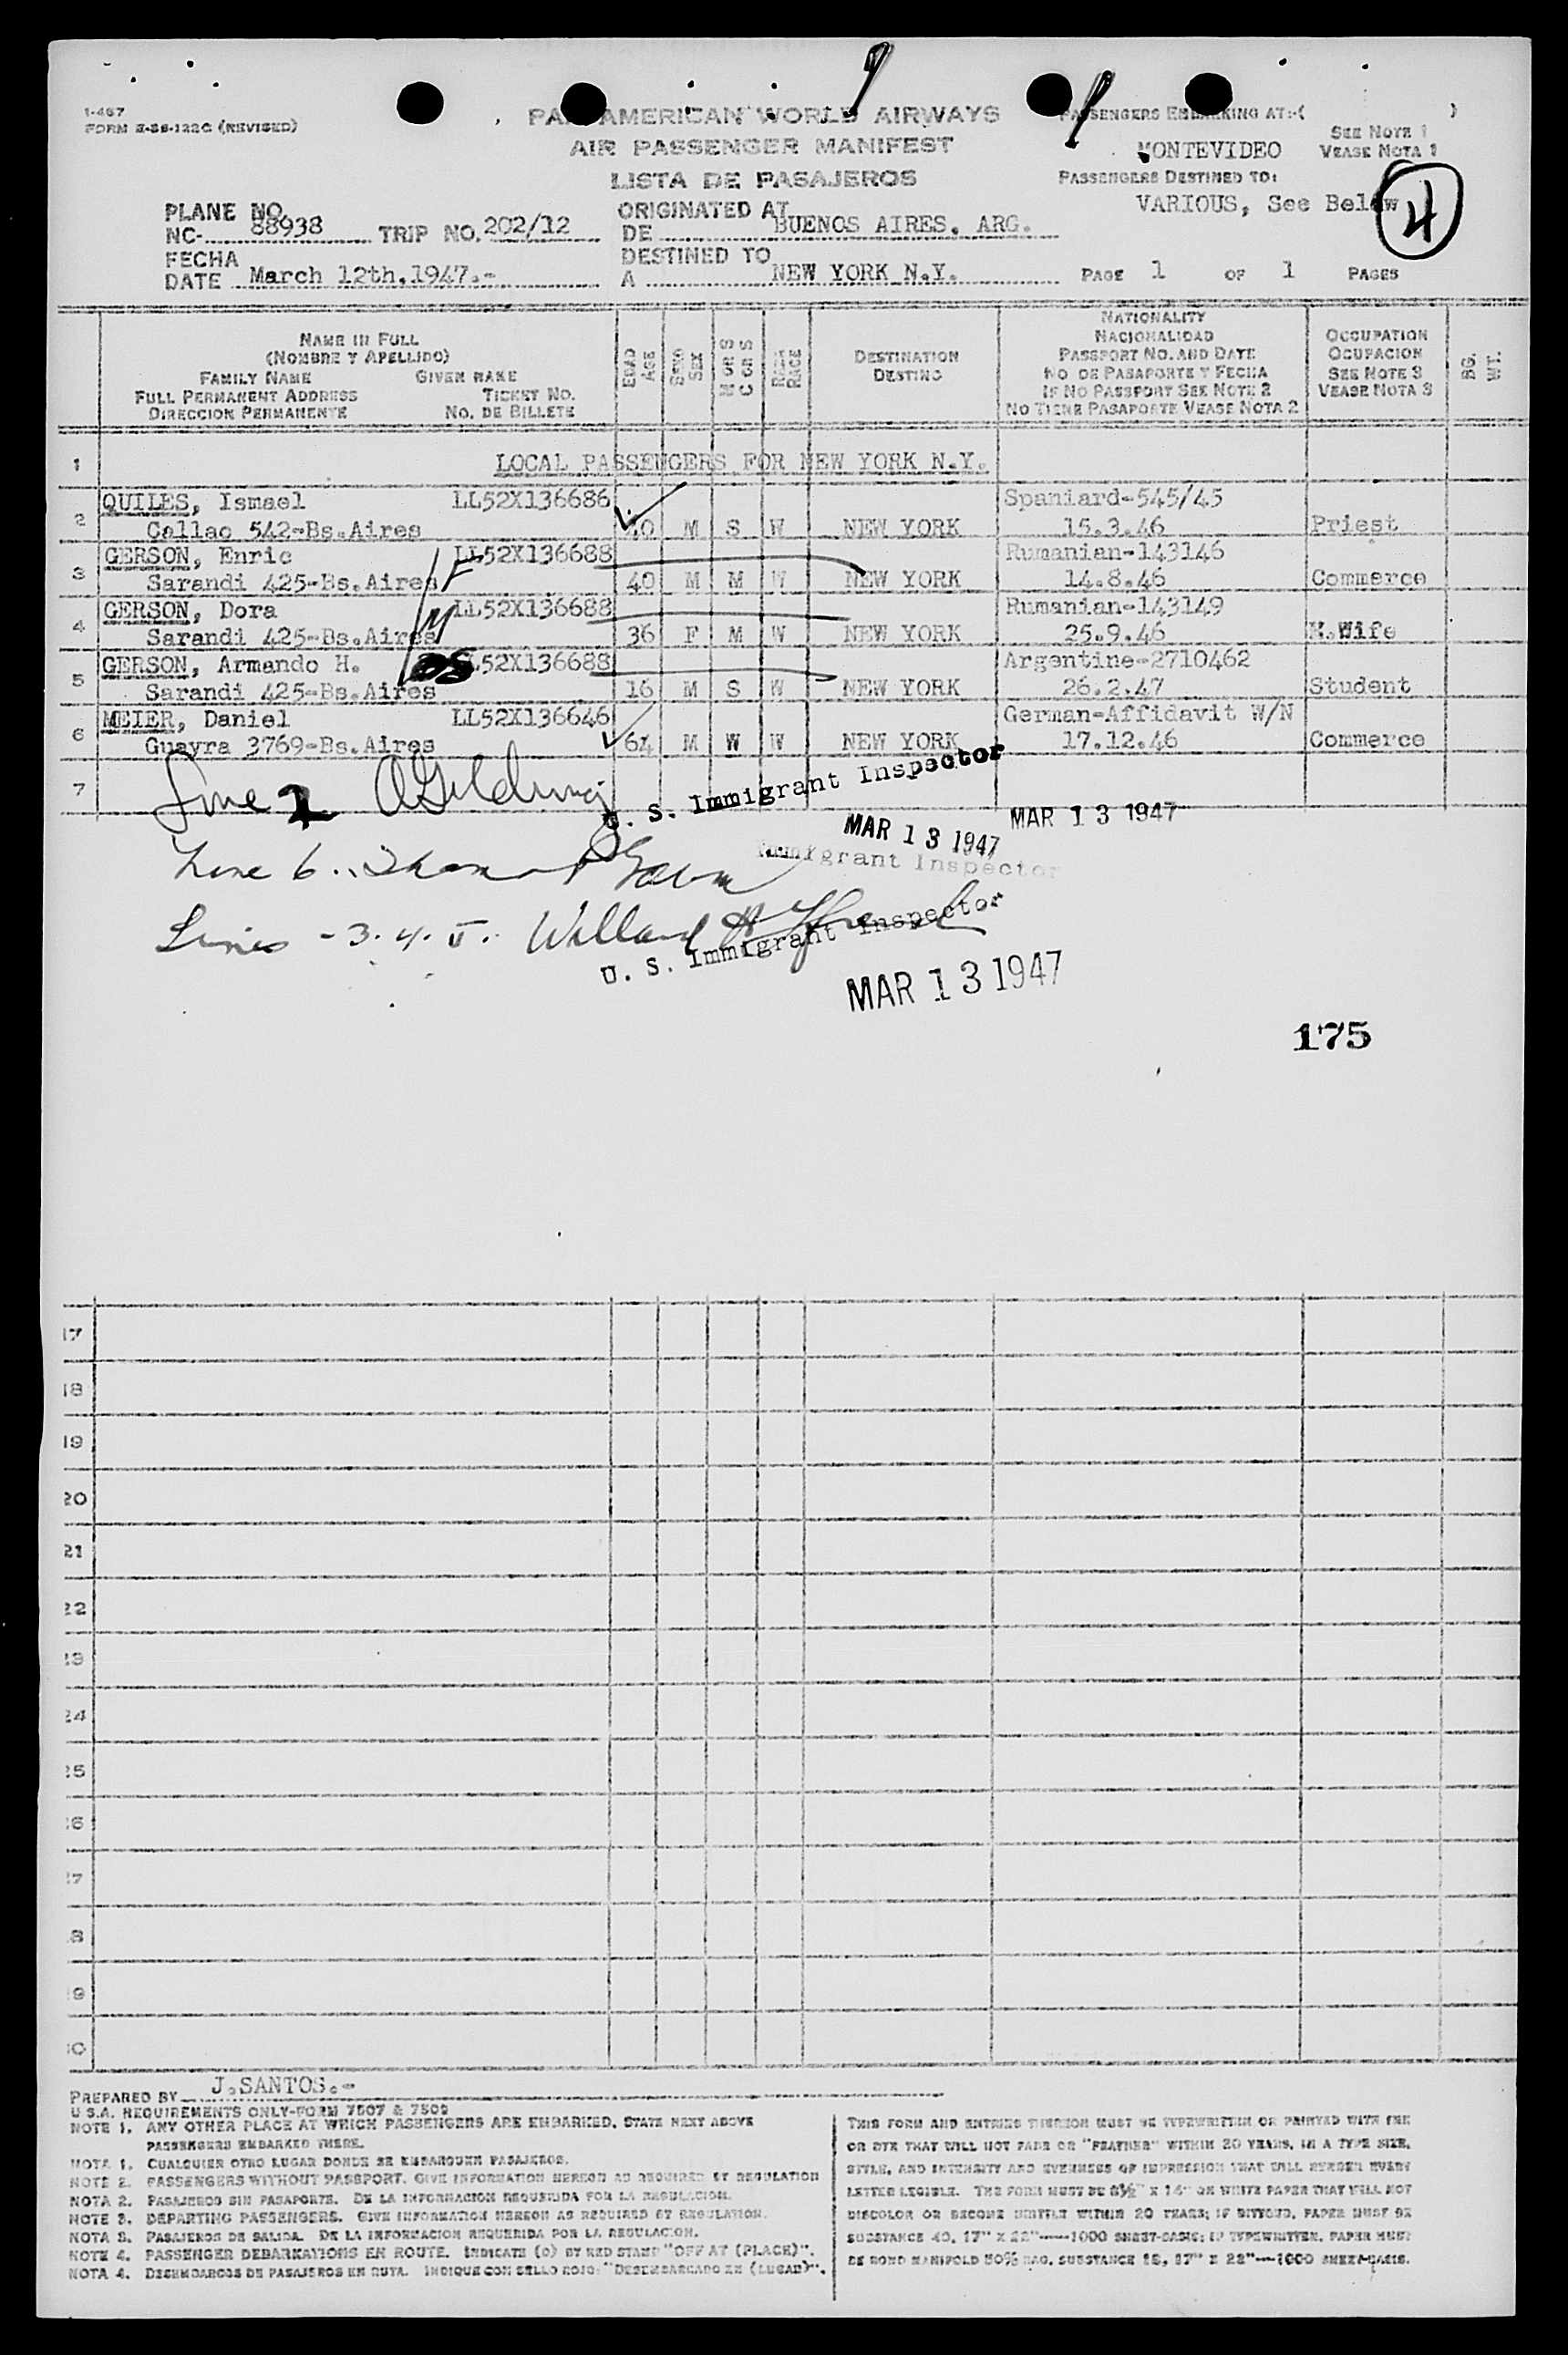 1-467
FORM E-SS-122C (REVISED)
PAN AMERICAN WORLD AIRWAYS
AIR PASSENGER MANIFEST
LISTA DE PASAJEROS
PASSENGERS EMBARKING AT:-( )
SEE NOTE 1
MONTEVIDEO VEASE NOTA 1
PASSENGERS DESTINED TO:
VARIOUS, See Below
4
PLANE NO.
NC- 88938 TRIP NO. 202/12
ORIGINATED AT
DE BUENOS AIRES. ARG.
FECHA
DATE March 12th.1947.-
DESTINED TO
A NEW YORK N.Y.
PAGE 1 OF 1 PAGES
NAME IN FULL
(NOMBRE Y APELLIDO)
FAMILY NAME GIVEN NAME
FULL PERMANENT ADDRESS TICKET NO.
DIRECCION PERMANENTE NO. DE BILLETE
EDAD
AGE
SEXO
SEX
M OR S
C OR S
RAZA
RACE
DESTINATION
DESTINO
NATIONALITY
NACIONALIDAD
PASSPORT NO. AND DATE
NO DE PASAPORTE Y FECHA
IF NO PASSPORT SEE NOTE 2
NO TIENE PASAPORTE VEASE NOTA 2
OCCUPATION
OCUPACION
SEE NOTE 3
VEASE NOTA 3
BG.
WT.
1 LOCAL PASSENGERS FOR NEW YORK N.Y.
QUILES, Ismael LL52X136686 Spaniard-545/45
2 Callao 542-Bs.Aires 40 M S W NEW YORK 15.3.46 Priest
GERSON, Enric LL52X136688 Rumanian-143146
3 Sarandi 425-Bs.Aires 40 M M W NEW YORK 14.8.46 Commerce
GERSON, Dora LL52X136688 Rumanian-143149
4 Sarandi 425-Bs.Aires 36 F M W NEW YORK 25.9.46 H.Wife
GERSON, Armando H. LL52X136688 Argentine-2710462
5 Sarandi 425-Bs.Aires 16 M S W NEW YORK 26.2.47 Student
MEIER, Daniel LL52X136646 German-Affidavit W/N
6 Guayra 3769-Bs.Aires 64 M W W NEW YORK 17.12.46 Commerce
7
Line 2
U. S. Immigrant Inspector
MAR 13 1947
MAR 13 1947
Immigrant Inspector
Line 6
Lines - 3. 4. 5. Willard
U. S. Immigrant Inspector
MAR 13 1947
175
17
18
19
20
21
22
23
24
25
26
27
28
29
30
PREPARED BY J.SANTOS.-
U S.A. REQUIREMENTS ONLY-FORM 7507 & 7509
NOTE 1. ANY OTHER PLACE AT WHICH PASSENGERS ARE EMBARKED, STATE NEXT ABOVE
PASSENGERS EMBARKED THERE.
NOTA 1. CUALQUIER OTRO LUGAR DONDE SE EMBARQUEN PASAJEROS.
NOTE 2. PASSENGERS WITHOUT PASSPORT. GIVE INFORMATION HEREON AS REQUIRED BY REGULATION
NOTA 2. PASAJEROS SIN PASAPORTE. DE LA INFORMACION REQUERIDA POR LA REGULACION.
NOTE 3. DEPARTING PASSENGERS. GIVE INFORMATION HEREON AS REQUIRED BY REGULATION.
NOTA 3. PASAJEROS DE SALIDA. DE LA INFORMACION REQUERIDA POR LA REGULACION.
NOTE 4. PASSENGER DEBARKATIONS EN ROUTE. INDICATE (O) BY RED STAMP "OFF AT (PLACE)".
NOTA 4. DESEMBARCOS DE PASAJEROS EN RUTA. INDIQUE CON SELLO ROJO: "DESEMBARCADO EN (LUGAR)".
THIS FORM AND ENTRIES THEREON MUST BE TYPEWRITTEN OR PRINTED WITH INK
OR DYE THAT WILL NOT FADE OR "FEATHER" WITHIN 20 YEARS, IN A TYPE SIZE,
STYLE, AND INTENSITY AND EVENNESS OF IMPRESSION THAT WILL RENDER EVERY
LETTER LEGIBLE. THE FORM MUST BE 8½" X 14" ON WHITE PAPER THAT WILL NOT
DISCOLOR OR BECOME BRITTLE WITHIN 20 YEARS; IF DITTOED, PAPER MUST BE
SUBSTANCE 40, 17" X 22"—1000 SHEET-BASIS; IF TYPEWRITTEN, PAPER MUST
BE BOND MANIFOLD 50% RAG, SUBSTANCE 18, 17" X 22"—1000 SHEET-BASIS.